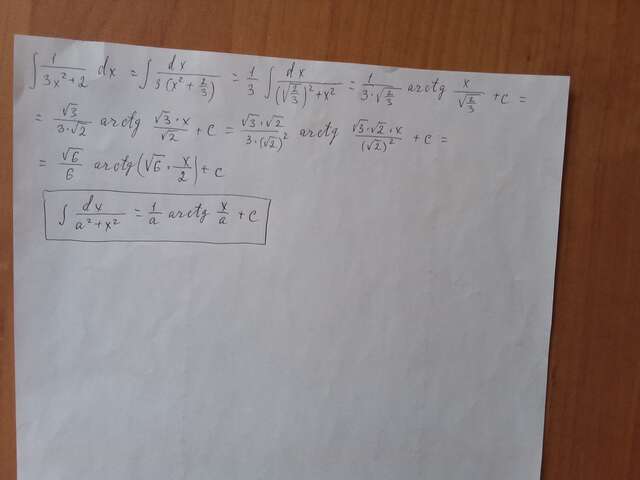 ∫ 1/(3x²+2) dx = ∫ dx/(3(x²+2/3)) = 1/3 ∫ dx/((√(2/3))²+x²) = 1/(3·√(2/3)) arctg x/√(2/3) + c =
= √3/(3·√2) arctg (√3·x)/√2 + c = (√3·√2)/(3·(√2)²) arctg (√3·√2·x)/(√2)² + c =
= √6/6 arctg(√6·x/2) + c
∫ dx/(a²+x²) = 1/a arctg x/a + c